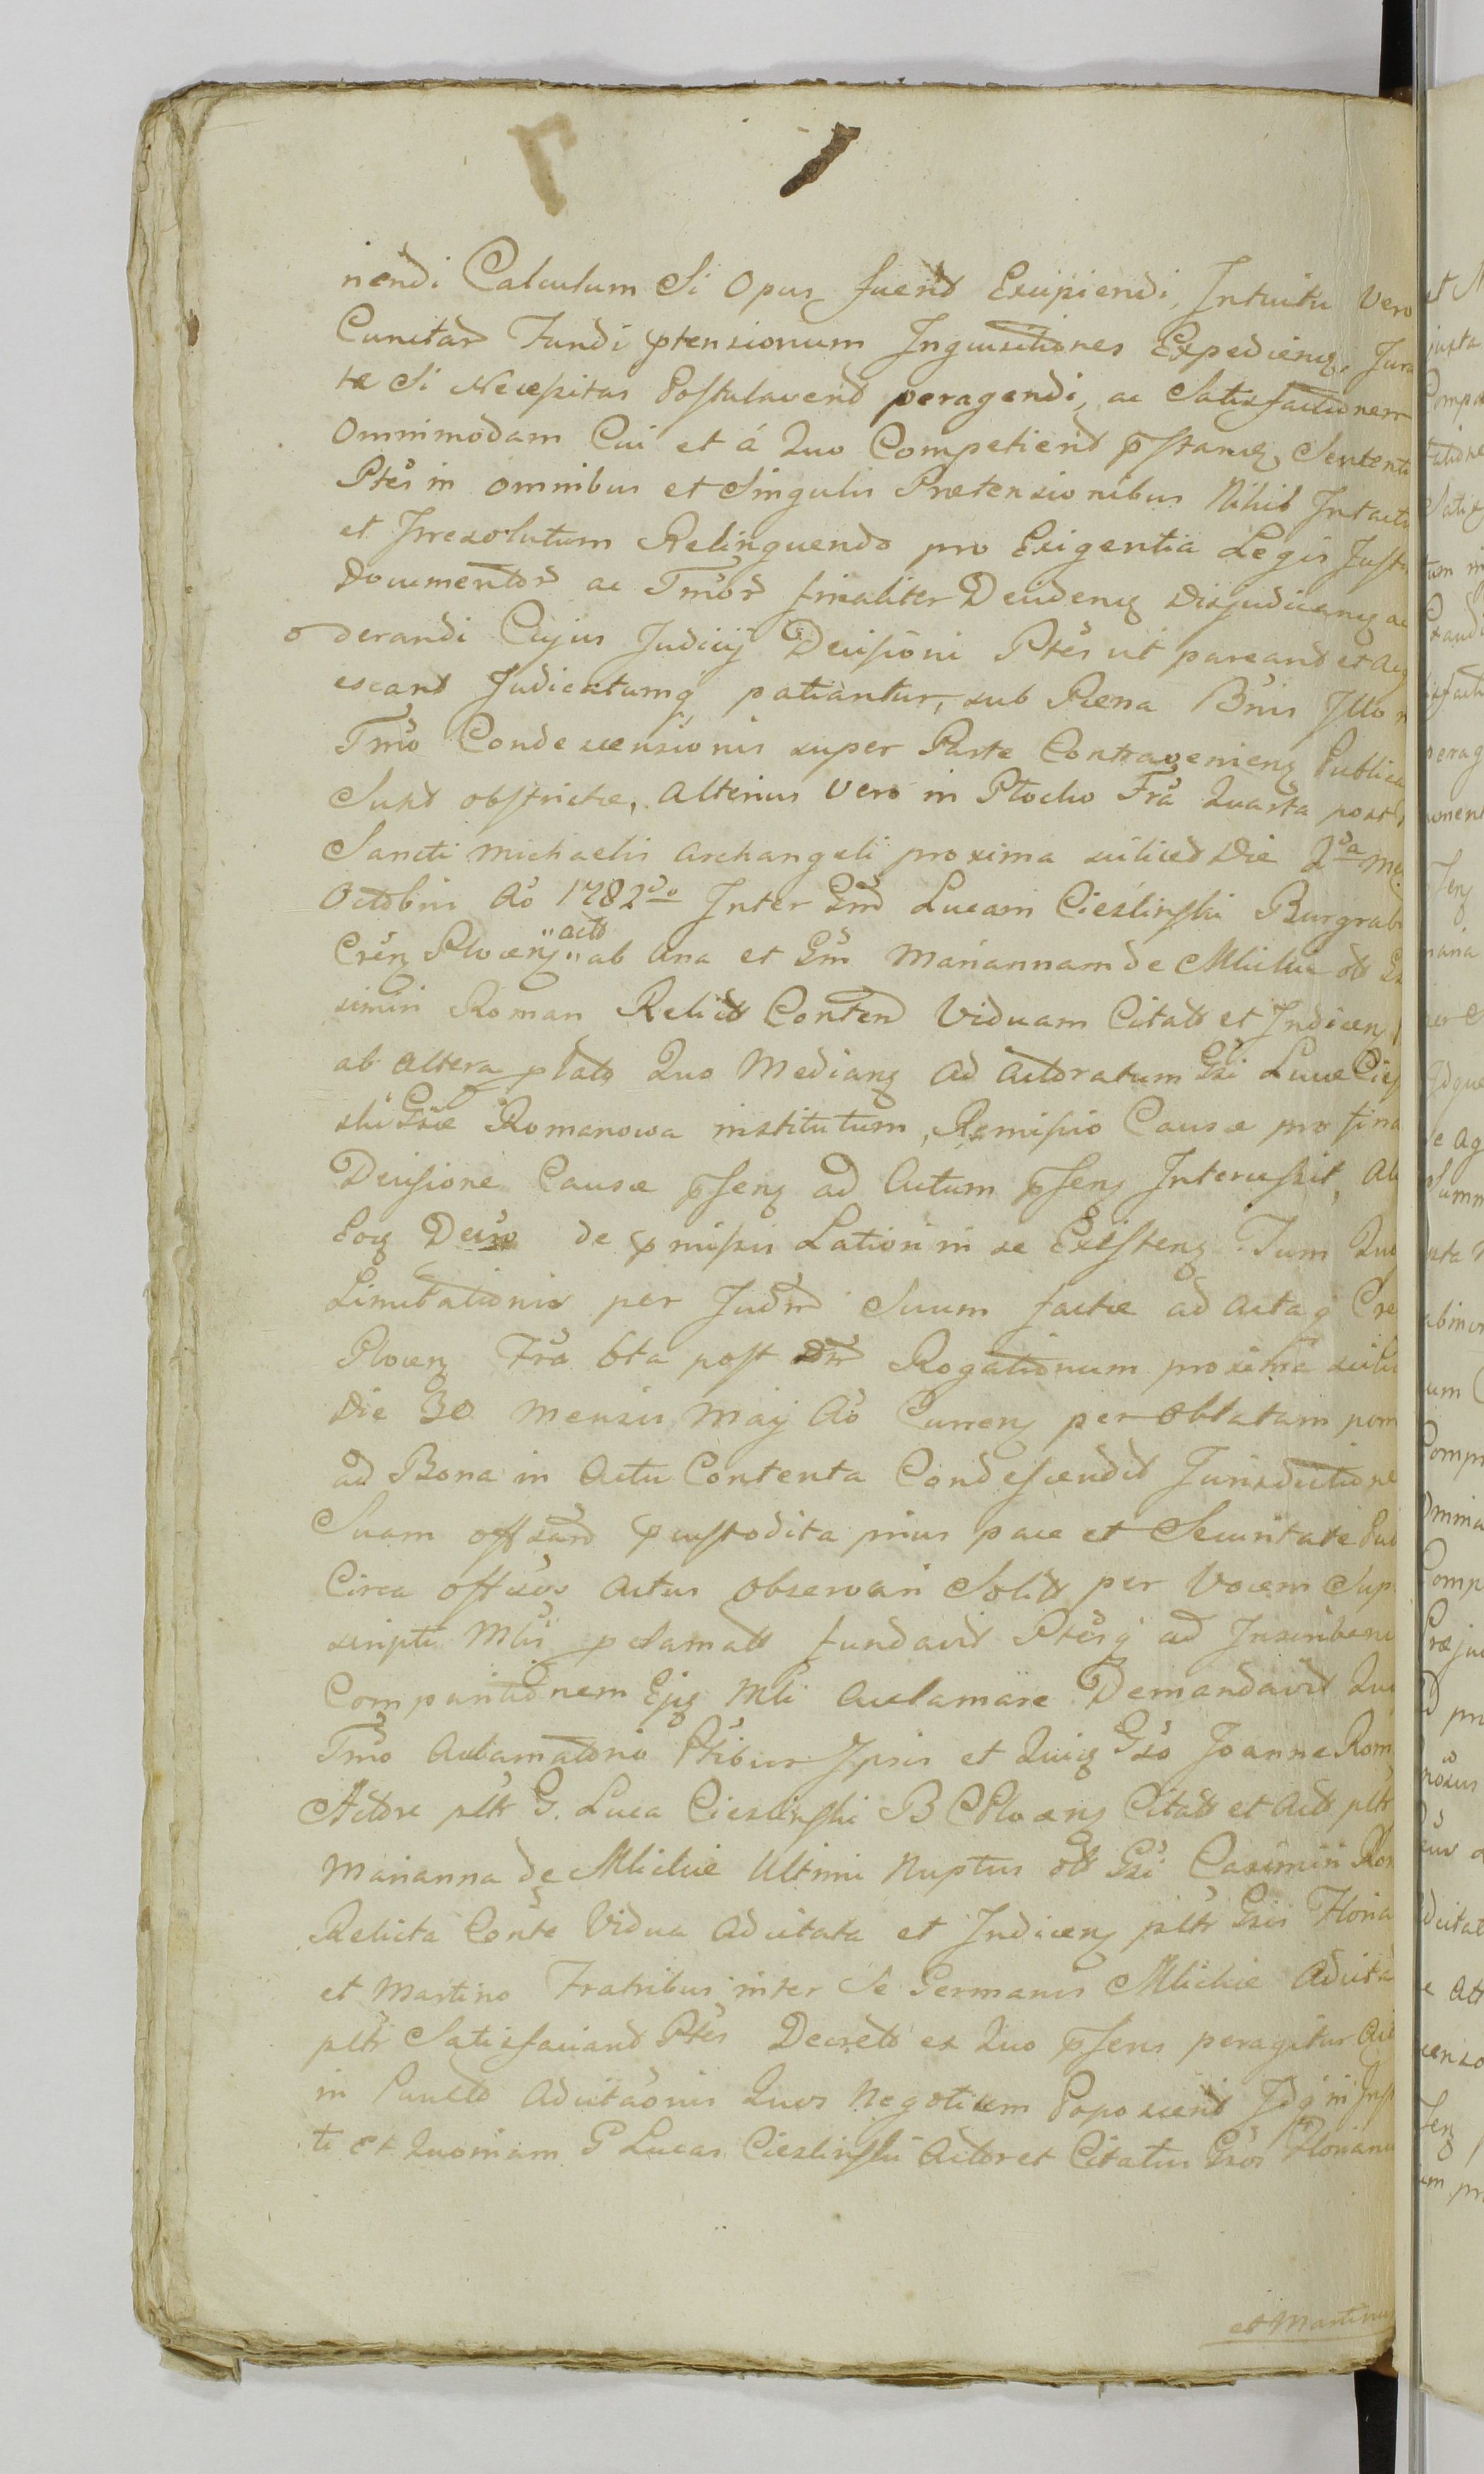 nendi Calculum Si Opus fuerit Excipiendi, Intuitu Vero
Cunctar Fundi ptensionum Inquisitiones Expedieng, Jura
tæ Si Necessitas Postulaverit peragendi, ac Satisfactionem
Omnimodam Cui et á Quo Competierit pstang, Sententi
Ptes in omnibus et Singulis Prætensionibus Nihil Intactu
et Irresolutum Relinquendo pro Exigentia Legis Justi
Documentor ac Tmor finaliter Decideng Disjudicang ac
derandi Cujus Judicij Decisioni Ptes ut pareant et Acq
escant Judicatumq patiantur, sub Pœna Bnis Illo
Tmo Condescensionis super Parte Contravenieng Publica
Sunt obstrictæ, Alterius Vero in Plocko Fra Quarta post
Sancti Michaelis Archangeli proxima scilicet Die 2da
Octobris Ao 1782do Inter Gm Lucam Cieslinski Burgrab
Cren Plocen "actt" ab Una et Gm Mariannam de Mlickie ott
simiri Roman Relict Conten Viduam Citatt et Indicen
ab Altera plato Quo Mediang ad Actoratum Gsi Lucæ Cies
ski Gsæ Romanowa institutum, Remissio Causæ pro fina
Decisione Causæ pseng ad Actum pseng Intercessit,
Eoq Decro de pmissis Lation in se Existeng. Tum
Limitationis per Judm Suum factæ ad Acta q Cre
Plocen Fra 6ta post Dm Rogationum proxima scilic
Die 30 Mensis Maij Ao Curreng per Oblatam
ad Bona in Actu Contenta Condescendit Jurisdictione
Suam offsam pcustodita prius pace et Securitate Pub
Circa offsos Actus Observari Solitt per Vocem Sup
scripti Mlis pclamatt fundavit Ptesq ad Inscriben
Comparitionem Ejq Mli Acclamare Demandavit Qu
Tmo Acclamatorio Ptibus Ipsis et Quiq Gso Joanne Rom
Actore pltr G. Luca Cieslinski B C Plocen Citatt et Actt pltr
Marianna de Mlickie Ultimi Nuptus ott Gsi Casimiri Rom
Relicta Conte Vidua Adcitata et Indicen pltr Gsis Floria
et Martino Fratribus inter Se Germanis Mlickie Adcita
pltr Satisfaciant Ptes Decreto ex Quo psens peragitur
in Puncto Adcitaonis Quos Negotium Poposcerit Idq in
ti Et Quoniam G Lucas Cieslinski Actor et Citatus Gsos Florianu
et Martinu